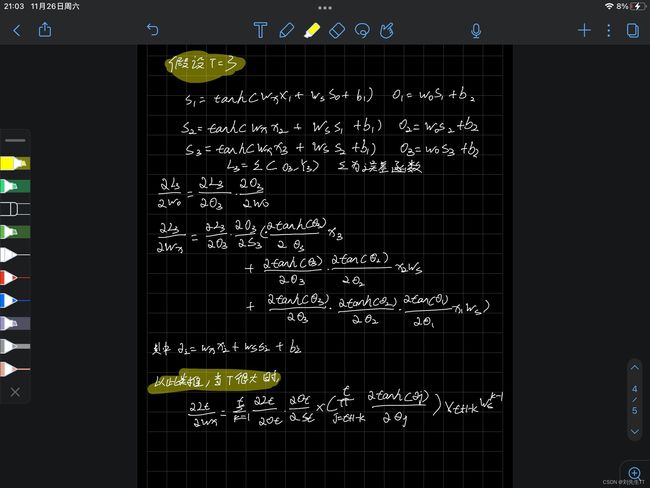 21:03 11月26日周六
8%
假设T=3
S₁ = tanh(WₓX₁ + WₛS₀ + b₁) O₁ = W₀S₁ + b₂
S₂ = tanh(WₓX₂ + WₛS₁ + b₁) O₂ = W₀S₂ + b₂
S₃ = tanh(WₓX₃ + WₛS₂ + b₁) O₃ = W₀S₃ + b₂
L₃ = Σ(O₃, Y₃) Σ为误差函数
∂L₃/∂W₀ = ∂L₃/∂O₃ · ∂O₃/∂W₀
∂L₃/∂Wₓ = ∂L₃/∂O₃ · ∂O₃/∂S₃ (∂tanh(θ₃)/∂θ₃ X₃
+ ∂tanh(θ₃)/∂θ₃ · ∂tan(θ₂)/∂θ₂ X₂Wₛ
+ ∂tanh(θ₃)/∂θ₃ · ∂tanh(θ₂)/∂θ₂ · ∂tan(θ₁)/∂θ₁ X₁Wₛ)
其中 = WₓX₂ + WₛS₂ + b₂
以此类推,当T很大时,
∂Lt/∂Wₓ = Σ(k=1, t) ∂Lt/∂Ot · ∂Ot/∂St × (Π(j=t+1-k, t) ∂tanh(θj)/∂θj) Xt+1-k Wₛ^(k-1)
4
5
CSDN @刘先生TT